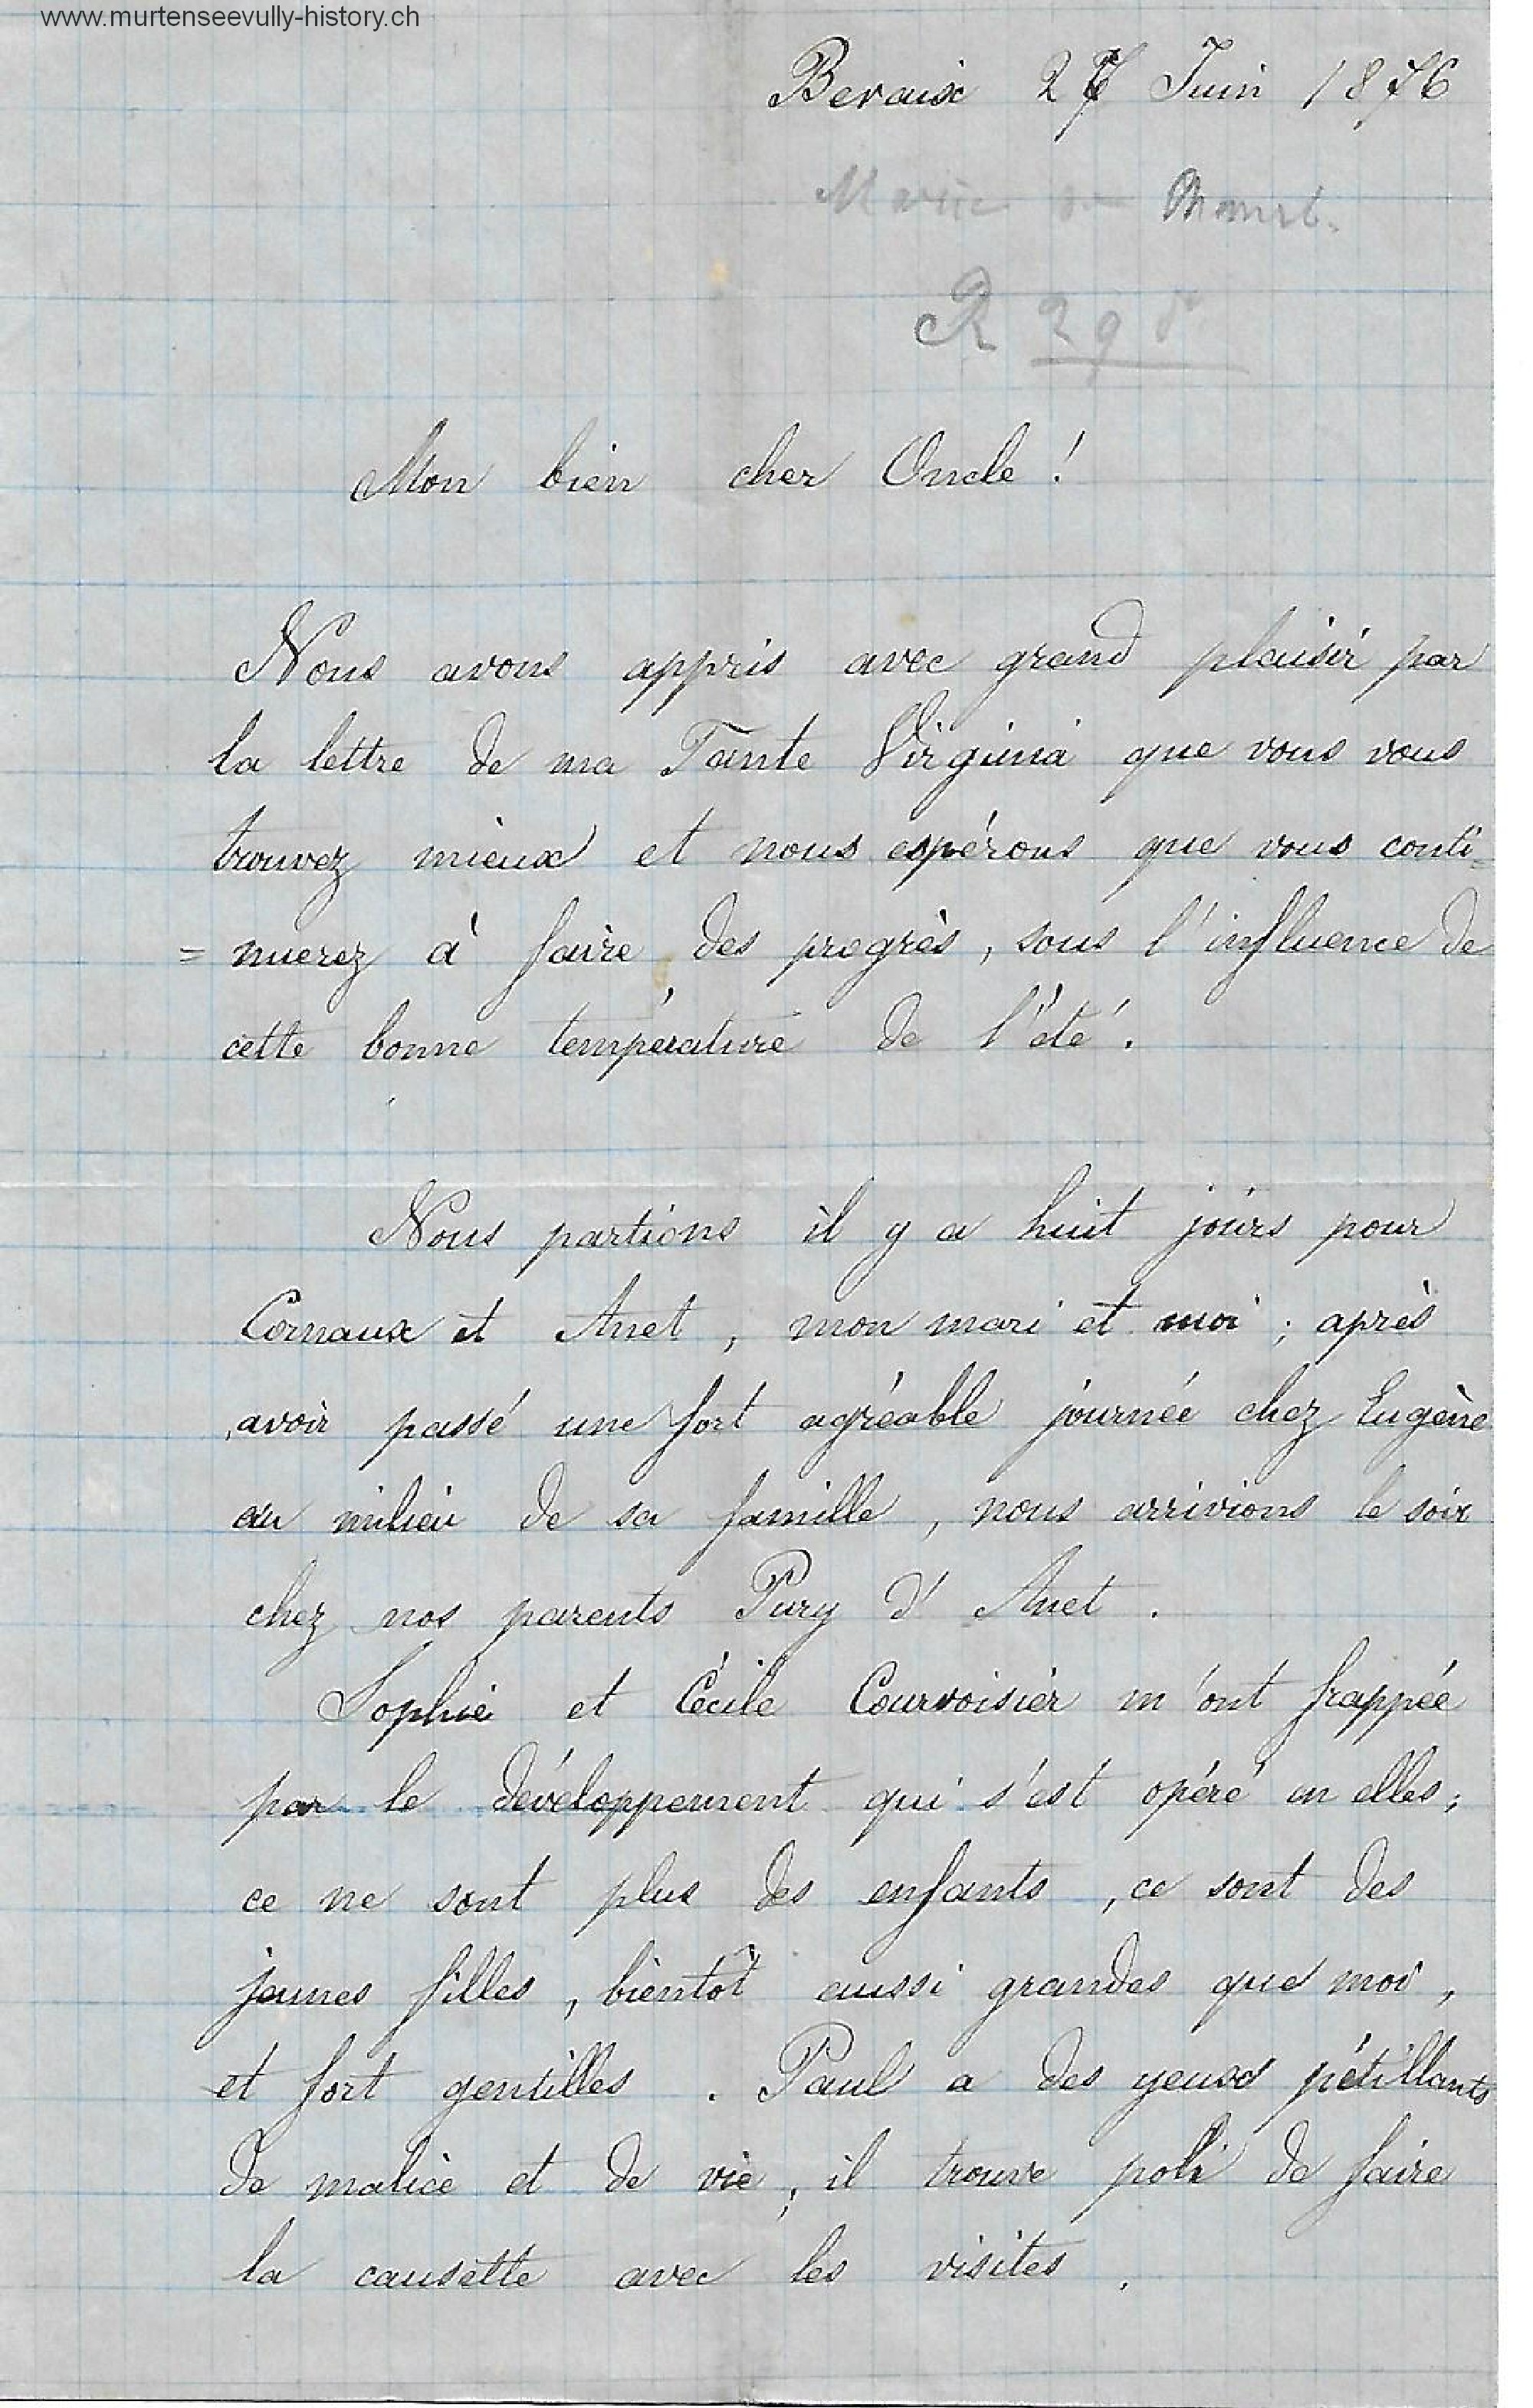 www.murtenseevully-history.ch
Bevaix 27 Juin 1876
Marie
R 298
Mon bien cher Oncle !
Nous avons appris avec grand plaisir par
la lettre de ma Tante Virginia que vous vous
trouvez mieux et nous espérons que vous conti=
=nuerez à faire des progrès, sous l'influence de
cette bonne température de l'été.
Nous partions il y a huit jours pour
Cornaux et Anet, mon mari et moi ; après
avoir passé une fort agréable journée chez Eugène
au milieu de sa famille, nous arrivions le soir
chez nos parents Pury d'Anet.
Sophie et Cécile Courvoisier m'ont frappée
par le développement qui s'est opéré en elles ;
ce ne sont plus des enfants, ce sont des
jeunes filles, bientôt aussi grandes que moi,
et fort gentilles. Paul a des yeux pétillants
de malice et de vie ; il trouve poli de faire
la causette avec les visites.